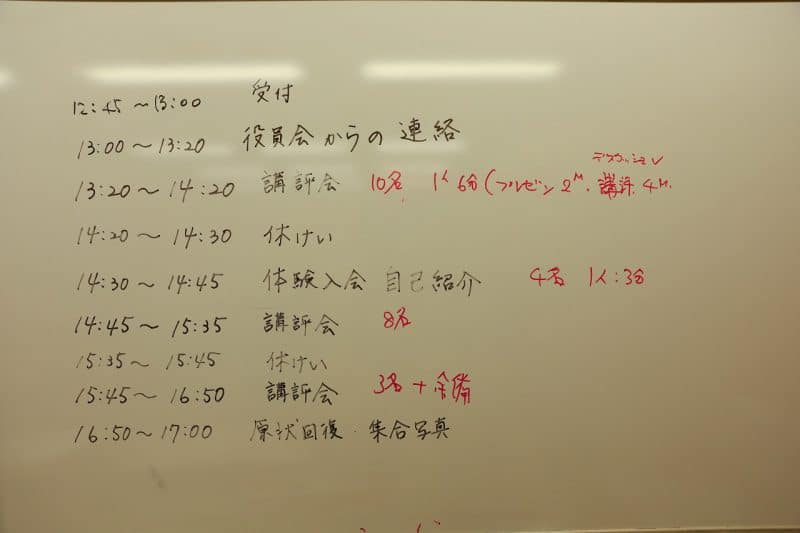 12:45 ～ 13:00 受付
13:00 ～ 13:20 役員会からの連絡
ディスカッション
13:20 ～ 14:20 講評会 10名 1人 6分 (プレゼン 2M. 講評 4M.
14:20 ～ 14:30 休けい
14:30 ～ 14:45 体験入会 自己紹介 4名 1人:3分
14:45 ～ 15:35 講評会 8名
15:35 ～ 15:45 休けい
15:45 ～ 16:50 講評会 3名 + 予備
16:50 ～ 17:00 原状回復・集合写真